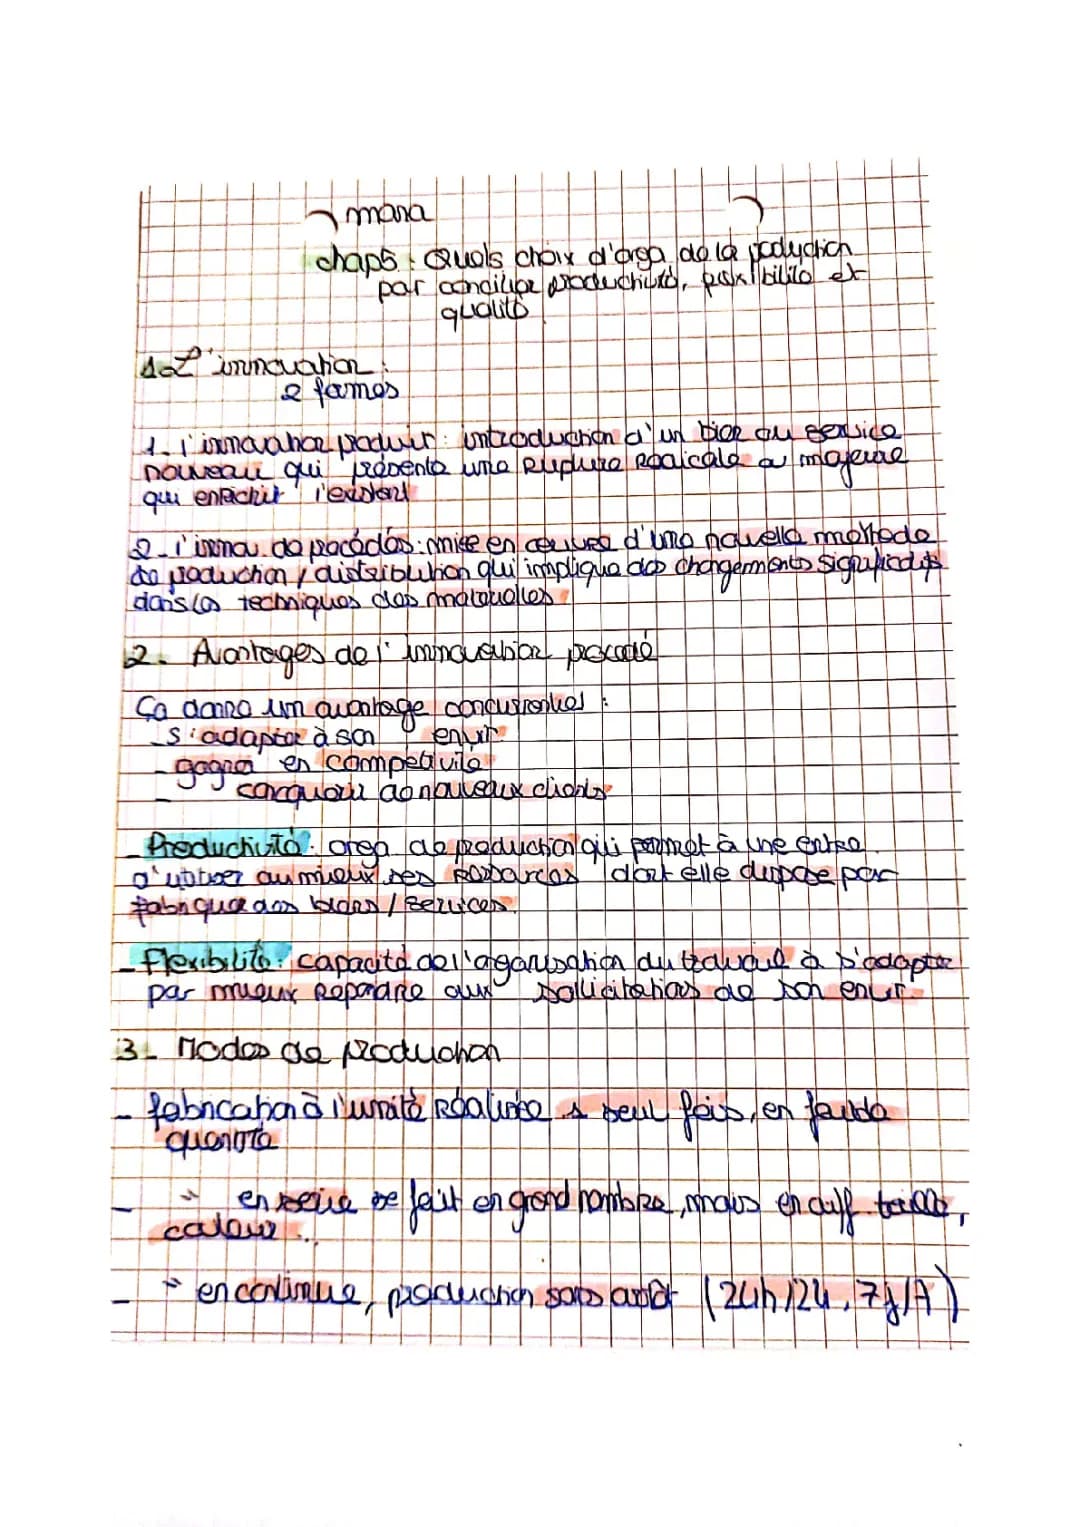 mana
chap5 : Quels choix d'orga de la production
par concilier productivité, flexibilité et
qualité
1. L'innovation :
2 formes
1. l'innovation produit : introduction d'un bien ou service
nouveau qui présente une rupture radicale ou majeure
qui enrichit l'existant
2. l'innov. de procédés : mise en œuvre d'une nouvelle méthode
de production / distribution qui implique des changements significatifs
dans les techniques des
2. Avantages de l'innovation procédé
Ça donne un avantage concurrentiel :
- s'adapter à son envir.
- gagner en compétitivité
- conquérir de nouveaux clients
- Productivité : orga de production qui permet à une entre.
d'utiliser au mieux ses ressources dont elle dispose par
fabriquer des biens / services.
- Flexibilité : capacité de l'organisation du travail à s'adapter
par mieux répondre aux sollicitations de son envir.
3- Modes de production
- fabrication à l'unité réalisée 1 seul fois, en faible
quantité
- " en série se fait en grand nombre, mais en diff taille,
couleur...
- " en continue, production sans arrêt (24h/24, 7j/7)